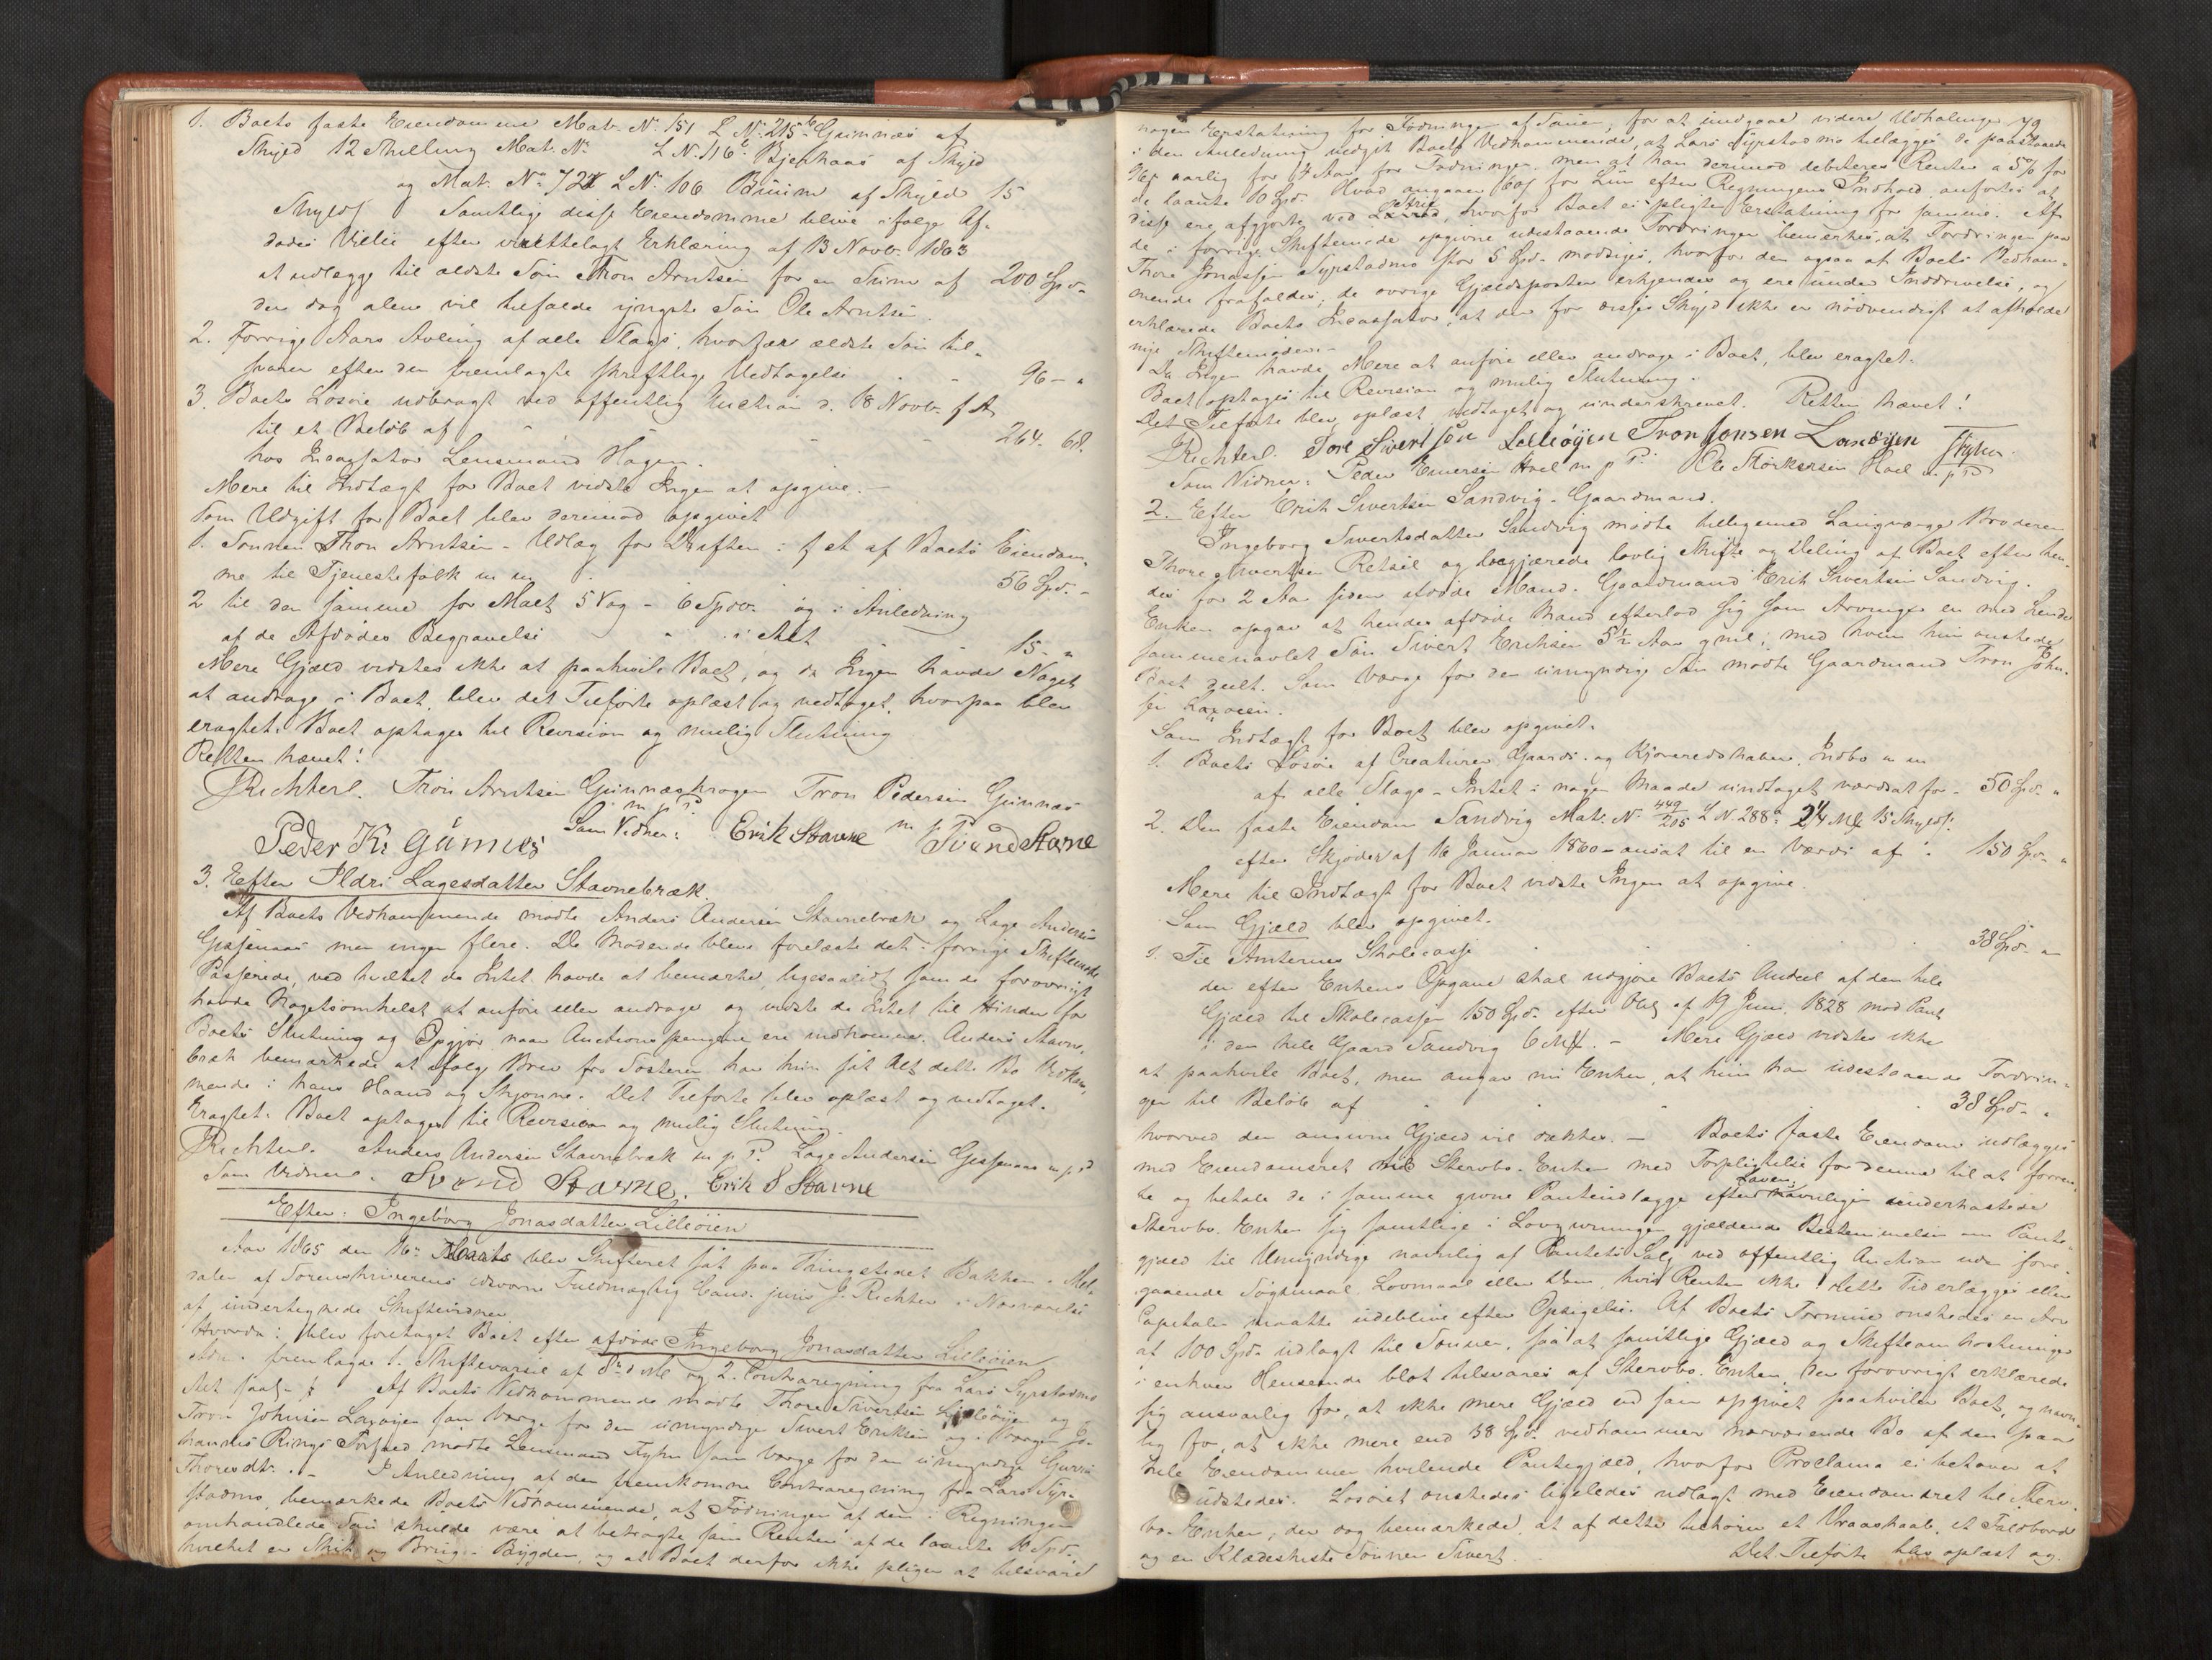 1. Boets faste Eiendomme Mat. No. 151 L No. 215 b Grimnæs af
Skyld 12 Skilling Mat. No. L N. 116 b af Skyld
og Mat. No. 72 L No. 106 af Skyld 15
Skyld Samtlige disse Eiendomme blive ifølge Af-
dødes Villie efter Erklæring af 13 Novbr. 1863
at udlægge til ældste Søn Thron Arntsen for en Sum af 200 Spd.
der dog alene vil tilfalde yngste Søn Ole Arntsen.
2. Forrige Aars Avling af alle Slags, hvorfor ældste Søn til-
svarer efter den fremlagte skriftlige Vedtagelse 96 - "
3. Boets Løsøre udbragt ved offentlig Auction d. 18 Novbr. f A.
til et Beløb af 264. 68.
hos Incassator Lensmand Hagen.
Mere til Indtægt for Boet vidste Ingen at opgive. -
Som Udgift for Boet blev derimod opgivet
1. Sønnen Thron Arntsen - Udlæg for Driften af Boets Eiendom-
me til Tjenestefolk m m 56 Spd. -
2 til den samme for Malt 5 Vog - 6 Spdr. og i Anledning
af de Afdødes Begravelse i Alt 15 - "
Mere Gjæld vidstes ikke at paahvile Boet, og da Ingen havde Noget
at andrage i Boet, blev det Tilførte oplæst og vedtaget, hvorpaa blev
eragtet: Boet optages til Revision og mulig Slutning
Retten hævet!
J Richter l. Tron Arntsen Grimnæshagen Tron Pedersen Grimnæs
m. p. P. m. p.
Peder K: Gümnes Som Vidner: Erik Stavne Svend Stavne
3. Efter Ildri Lagesdatter Stavnebræk.
Af Boets Vedkommende mødte Anders Andersen Stavnebræk og Lage Andersen
Gjessenaas men ingen flere. De Mødende bleve forelæste det i forrige Skiftemøde
Passerede, ved hvilket de Intet havde at bemærke, ligesaalidt som de forøvrigt
havde Nogetsomhelst at anføre eller andrage og vidste de Intet til Hinder for
Boets Slutning og Opgjør naar Auctionspengene ere indkomne. Anders Stavne-
bræk bemærkede at ifølge Brev fra Søsteren har hun sat Alt dette Bo Vedkom-
mende i hans Haand og Skjønne. Det Tilførte blev oplæst og vedtaget.
Eragtet: Boet optages til Revision og mulig Slutning.
J Richter l. Anders Andersen Stavnebræk m. p. P. Lage Andersen Gjessenaas m. p. P
Som Vidner. Svend Stavne. Erik S Stavne
Efter: Ingeborg Jonasdatter Lilleøien
Aar 1865 den 16de Marts blev Skifteret sat paa Thingstedet Bakken i Mel-
dalen af Sorenskriverens edsvorne Fuldmægtig Cand. juris J. Richter i Nærværelse
af undertegnede Skiftevidner
Hvorda: blev foretaget Boet efter afdøde Ingeborg Jonasdatter Lilleøien
Adm. fremlagde 1. Skiftevarsel af 8de d. M. og 2. Contraregning fra Lars Syrstadmo
Af Boets Vedkommende mødte Thore Sivertsen Lilleøien og
Tron Johnsen Langøien som Værge for den umyndige Sivert Eriksen og i Værgen Jo-
hannes Rings Forfald mødte Lensmand som Værge for den umyndige Guru
Thoresdtr. - I Anledning af den fremkomne Contraregning fra Lars Syr-
stadmo, bemærkede Boets Vedkommende, at Fødningen af den i Regningen
omhandlede Sau skulde være at betragte som Renten af de laante 10 Spd.,
hvilket er Skik og Brug i Bygden, og at Boet derfor ikke pligter at tilsvare
79
nogen Erstatning for Fødningen af Sauen; for at undgaae videre Udhalinger
i den Anledning vedgik Boets Vedkommende, at Lars Syrstadmo tillægges de paastaaede
aarlig for 4 Aar for Fødningen, men at han derimod debiteres Renter a 5% for
de laante 10 Spd. Hvad angaaer 60 s for Liin efter Regningens Indhold anførtes at
disse ere afgjorte ved, hvorfor Boet ei pligter Erstatning for samme. Af
de i forrige Skiftemøde opgivne udestaaende Fordringer bemærkes, at Fordringen paa
Thore Jonassen Syrstadmo stor 5 Spd. modsiges, hvorfor den ogsaa af Boets Vedkom-
mende frafaldes; de øvrige Gjældsposter erkjendes og ere under Inddrivelse, og
erklærede Boets Incassator, at det for disses Skyld ikke er nødvendigt at afholde
nye Skiftemøder. -
Da Ingen havde Mere at anføre eller andrage i Boet, blev eragtet.
Boet optages til Revision og mulig Slutning.
Det Tilførte blev oplæst, vedtaget og underskrevet. Retten hævet!
J Richter l. Tore Sivertsøn Lilleøyen Tron Jonsen Lanøyen
Som Vidner: Peder Hoel m p P. Ole Størkersen Hoel m. p P
2. Efter Erik Sivertsen Sandvig - Gaardmand.
Ingeborg Sivertsdatter Sandvig mødte tilligemed Laugværge Broderen
Thore Sivertsen Retsel og begjærede lovlig Skifte og Deling af Boet efter hen-
des for 2 Aar siden afdøde Mand. Gaardmand Erik Sivertsen Sandvig.
Enken opgav at hendes afdøde Mand efterlod sig som Arvinger en med hende
sammenavlet Søn Sivert Eriksen 5½ Aar gml; med hvem hun ønskede
Boet deelt. Som Værge for den umyndige Søn mødte Gaardmand Tron John-
sen Langøien.
Som Indtægt for Boet blev opgivet.
1. Boets Løsøre af Creaturer Gaards- og Kjøreredskaber, Indbo m m
af alle Slags - Intet i nogen Maade undtaget værdsat for - 50 Spd. "
2. Den faste Eiendom Sandvig Mat. No. 449/205 L N 288 a 2¼ M# 15 Skyld s.
efter Skjøder af 16 Januar 1860 - ansat til en Værdi af - 150 Spd. "
Mere til Indtægt for Boet vidste Ingen at opgive.
Som Gjæld blev opgivet.
1. Til Amternes Skolecasse 38 Spd. "
der efter Enkens Opgave skal udgjøre Boets Andeel af den hele
Gjæld til Skolecassen 150 Spd. efter Obl. af 19 Juni 1828 mod Pant
i den hele Gaard Sandvig 6 M#. - Mere Gjæld vidstes ikke
at paahvile Boet, men angav nu Enken, at hun har udestaaende Fordrin-
ger til Beløb af 38 Spd. "
hvorved den angivne Gjæld vil dækkes. - Boets faste Eiendom udlægges
med Eiendomsret til Stervbo-Enken med Forpligtelse for denne til at forren-
te og betale de i samme givne Pantindlægge efter Loven, navnligen underkastede
Stervbo-Enken sig samtlige i Lovgivningen gjældende Bestemmelser om Pante-
gjæld til Umyndige navnlig af Pantets Salg ved offentlig Auction uden fore-
gaaende Søgsmaal Lovmaal eller Dom, hvis Renten ikke i rette Tid erlægges eller
Capitalen maatte udeblive efter Opsigelse. Af Boets Formue ønskedes en Arv
at 100 Spd. udlagt til Sønnen, saa at samtlige Gjæld og Skifteomkostninger
i enhver Henseende blot tilsvares af Stervbo-Enken, der forøvrigt erklærede
sig ansvarlig for, at ikke mere Gjæld end som opgivet paahviler Boet, og navn-
lig for, at ikke mere end 38 Spd. vedkommer nærværende Bo af den paa
hele Eiendommen hvilende Pantegjæld, hvorfor Proclama ei behøver at
udstedes. Løsøret ønskedes ligeledes udlagt med Eiendomsret til Sterv-
bo-Enken, der dog bemærkede, at af dette tilhører et Vraaskaab, et Foldbord
og en Klædeskiste Sønnen Sivert. Det Tilførte blev oplæst og